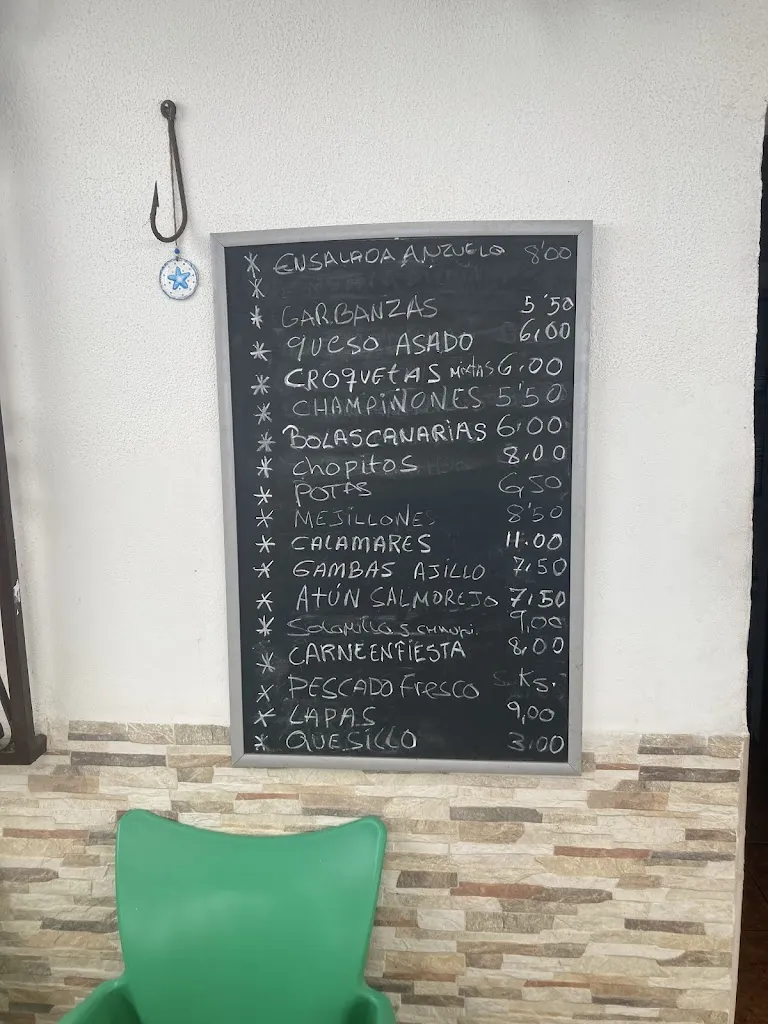 * ENSALADA ANZUELO 8'00
*
* GARBANZAS 5'50
* QUESO ASADO 6,00
* CROQUETAS MIXTAS 6.00
* CHAMPIÑONES 5'50
* BOLAS CANARIAS 6,00
* Chopitos 8,00
* POTAS 6,50
* MEJILLONES 8'50
* CALAMARES 11.00
* GAMBAS AJILLO 7,50
* ATÚN SALMOREJO 7,50
* 9,00
* CARNE EN FIESTA 8,00
* PESCADO Fresco S. KS.
* LAPAS 9,00
* QUESILLO 3.00